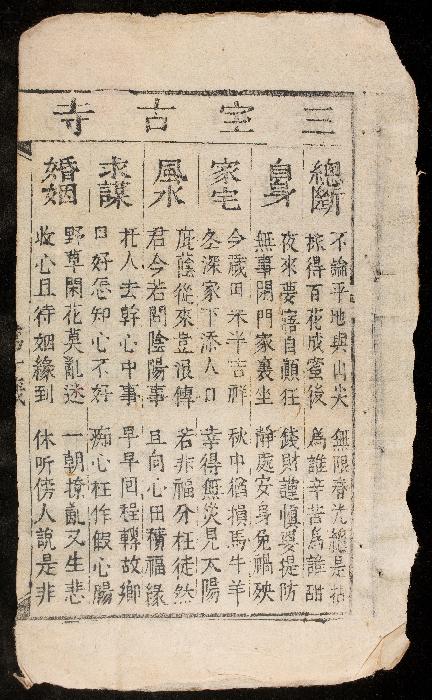 三空古寺
總斷
不論平地與山尖 無限春光總是拈
採得百花成蜜後 為誰辛苦為誰甜
自身
夜來要寤自顛狂 錢財謹慎要提防
無事閉門家裏坐 靜處安身免禍殃
家宅
今歲田禾半吉祥 秋中猶損馬牛羊
冬深家下添人口 幸得無災見太陽
風水
庇蔭從來豈浪傳 若非福分枉徒然
君今若問陰陽事 且向心田積福緣
求謀
托人去幹心中事 早早回程轉故鄉
口好怎知心不好 痴心枉作假心腸
婚姻
野草閑花莫亂迷 一朝撩亂又生悲
收心且待姻緣到 休听傍人說是非